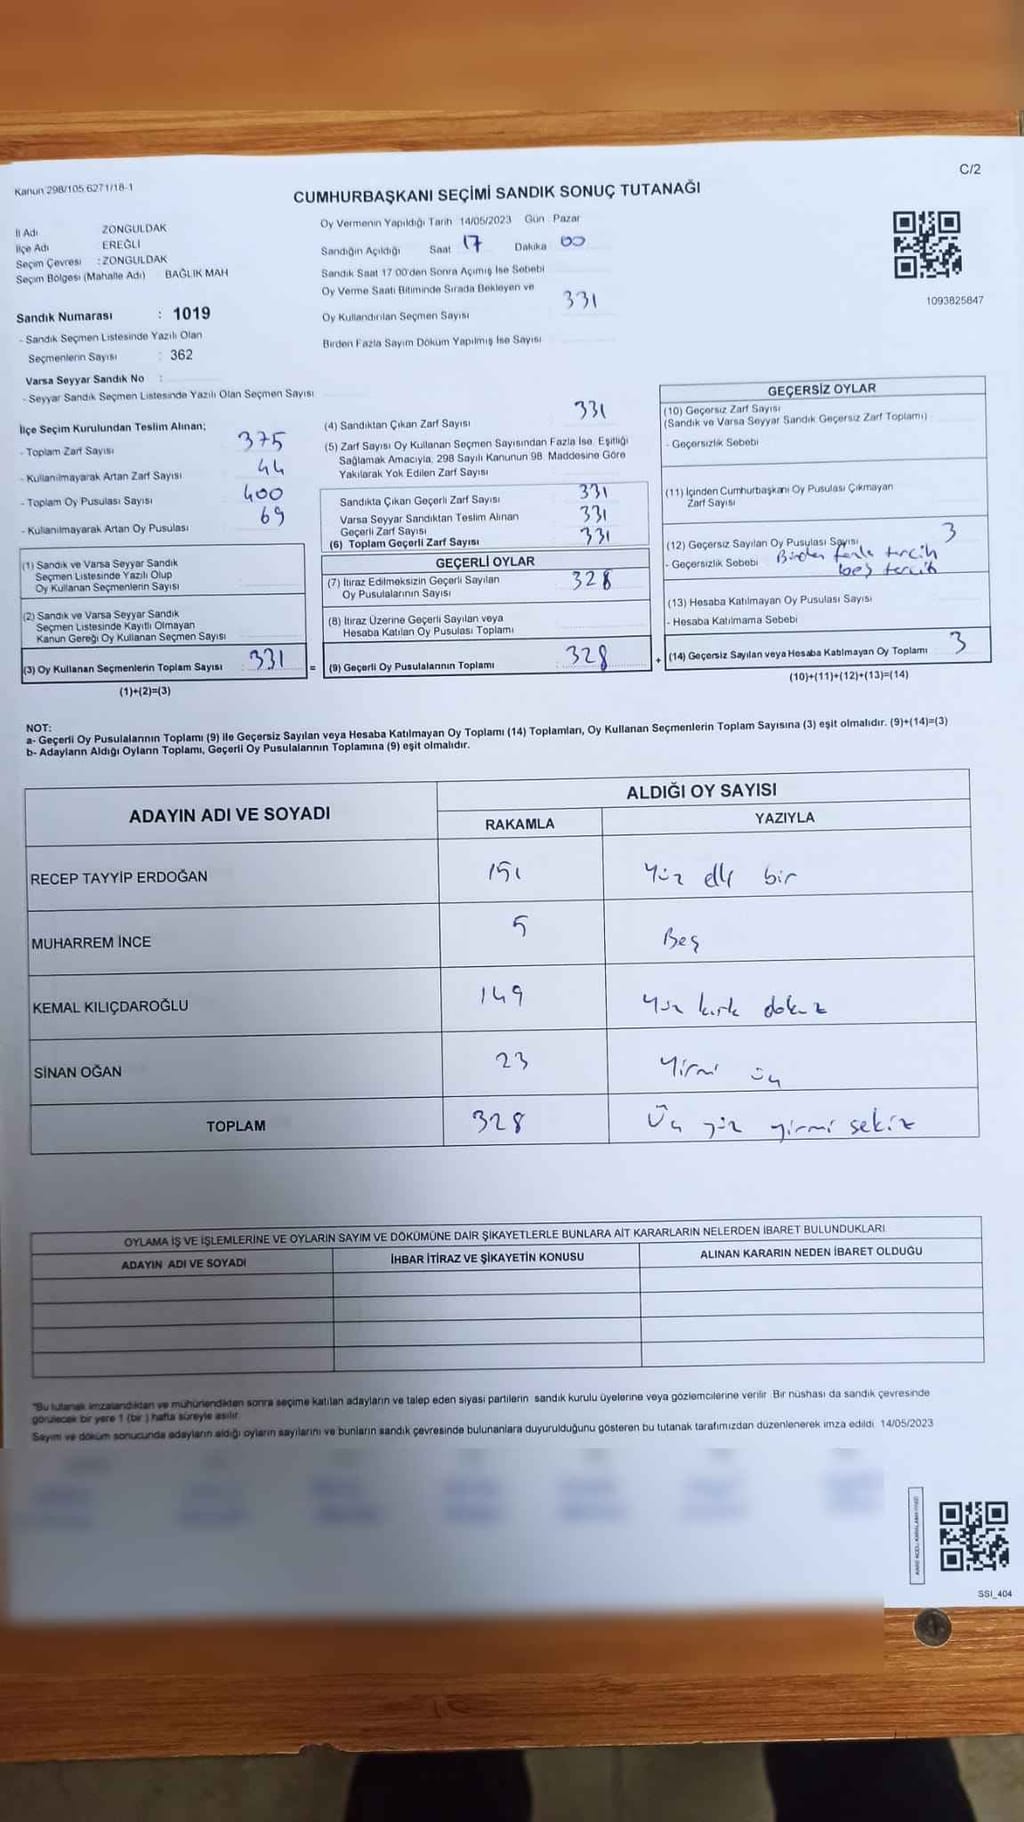 C/2
Kanun 298/105 6271/18-1
CUMHURBAŞKANI SEÇİMİ SANDIK SONUÇ TUTANAĞI
İl Adı ZONGULDAK
İlçe Adı EREĞLİ
Seçim Çevresi : ZONGULDAK
Seçim Bölgesi (Mahalle Adı) BAĞLIK MAH
Oy Vermenin Yapıldığı Tarih 14/05/2023 Gün Pazar
Sandığın Açıldığı Saat 17 Dakika 00
Sandık Saat 17 00'den Sonra Açımış İse Sebebi
Oy Verme Saati Bitiminde Sırada Bekleyen ve
Oy Kullandırılan Seçmen Sayısı 331
Birden Fazla Sayım Döküm Yapılmış İse Sayısı
1093825847
Sandık Numarası : 1019
- Sandık Seçmen Listesinde Yazılı Olan
Seçmenlerin Sayısı : 362
Varsa Seyyar Sandık No :
- Seyyar Sandık Seçmen Listesinde Yazılı Olan Seçmen Sayısı
İlçe Seçim Kurulundan Teslim Alınan;
- Toplam Zarf Sayısı 375
- Kullanılmayarak Artan Zarf Sayısı 44
- Toplam Oy Pusulası Sayısı 400
- Kullanılmayarak Artan Oy Pusulası 69
(1) Sandık ve Varsa Seyyar Sandık
Seçmen Listesinde Yazılı Olup
Oy Kullanan Seçmenlerin Sayısı
(2) Sandık ve Varsa Seyyar Sandık
Seçmen Listesinde Kayıtlı Olmayan
Kanun Gereği Oy Kullanan Seçmen Sayısı
(3) Oy Kullanan Seçmenlerin Toplam Sayısı 331
(1)+(2)=(3)
(4) Sandıktan Çıkan Zarf Sayısı 331
(5) Zarf Sayısı Oy Kullanan Seçmen Sayısından Fazla İse, Eşitliği
Sağlamak Amacıyla, 298 Sayılı Kanunun 98. Maddesine Göre
Yakılarak Yok Edilen Zarf Sayısı
Sandıkta Çıkan Geçerli Zarf Sayısı 331
Varsa Seyyar Sandıktan Teslim Alınan
Geçerli Zarf Sayısı 331
(6) Toplam Geçerli Zarf Sayısı 331
GEÇERLİ OYLAR
(7) İtiraz Edilmeksizin Geçerli Sayılan
Oy Pusulalarının Sayısı 328
(8) İtiraz Üzerine Geçerli Sayılan veya
Hesaba Katılan Oy Pusulası Toplamı
= (9) Geçerli Oy Pusulalarının Toplamı 328
GEÇERSİZ OYLAR
(10) Geçersiz Zarf Sayısı
(Sandık ve Varsa Seyyar Sandık Geçersiz Zarf Toplamı)
- Geçersizlik Sebebi
(11) İçinden Cumhurbaşkanı Oy Pusulası Çıkmayan
Zarf Sayısı
(12) Geçersiz Sayılan Oy Pusulası Sayısı 3
- Geçersizlik Sebebi Birden fazla tercih
boş tercih
(13) Hesaba Katılmayan Oy Pusulası Sayısı
- Hesaba Katılmama Sebebi
+ (14) Geçersiz Sayılan veya Hesaba Katılmayan Oy Toplamı 3
(10)+(11)+(12)+(13)=(14)
NOT:
a- Geçerli Oy Pusulalarının Toplamı (9) ile Geçersiz Sayılan veya Hesaba Katılmayan Oy Toplamı (14) Toplamları, Oy Kullanan Seçmenlerin Toplam Sayısına (3) eşit olmalıdır. (9)+(14)=(3)
b- Adayların Aldığı Oyların Toplamı, Geçerli Oy Pusulalarının Toplamına (9) eşit olmalıdır.
ADAYIN ADI VE SOYADI ALDIĞI OY SAYISI
RAKAMLA YAZIYLA
RECEP TAYYİP ERDOĞAN 151 Yüz elli bir
MUHARREM İNCE 5 Beş
KEMAL KILIÇDAROĞLU 149 Yüz kırk dokuz
SİNAN OĞAN 23 Yirmi üç
TOPLAM 328 Üç yüz yirmi sekiz
OYLAMA İŞ VE İŞLEMLERİNE VE OYLARIN SAYIM VE DÖKÜMÜNE DAİR ŞİKAYETLERLE BUNLARA AİT KARARLARIN NELERDEN İBARET BULUNDUKLARI
ADAYIN ADI VE SOYADI İHBAR İTİRAZ VE ŞİKAYETİN KONUSU ALINAN KARARIN NEDEN İBARET OLDUĞU
"Bu tutanak imzalandıktan ve mühürlendikten sonra seçime katılan adayların ve talep eden siyasi partilerin sandık kurulu üyelerine veya gözlemcilerine verilir. Bir nüshası da sandık çevresinde
görülecek bir yere 1 (bir ) hafta süreyle asılır.
Sayım ve döküm sonucunda adayların aldığı oyların sayılarını ve bunların sandık çevresinde bulunanlara duyurulduğunu gösteren bu tutanak tarafımızdan düzenlenerek imza edildi. 14/05/2023
SSI_404